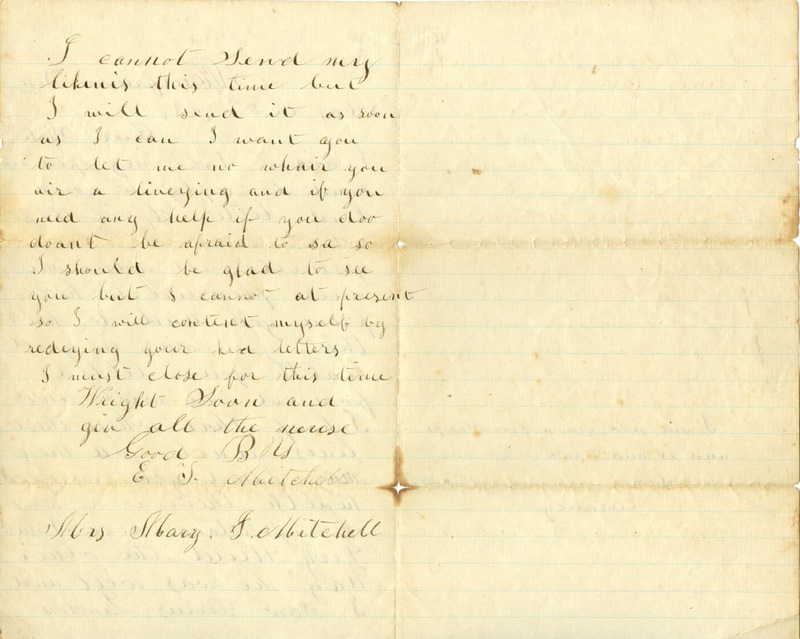 I cannot Send my
likenis this time but
I will send it as soon
as I can I want you
to let me no whair you
air a liveying and if you
need any help if you doo
doant be afraid to sa so
I should be glad to see
you but I cannot at present
so I will content myself by
redeying your kid letters
I must close for this time
Wright Soon and
giv all the neuse
Good By
E S. Mitchell
Mrs Mary. J. Mitchell